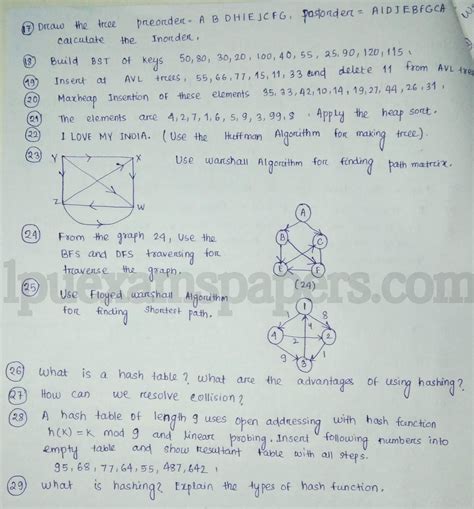 (17) Draw the tree preorder - A B D H I E J C F G, Postorder = A I D J E B F G C A
calculate the Inorder.
(18) Build BST of keys 50, 80, 30, 20, 100, 40, 55, 25, 90, 120, 115.
(19) Insert at AVL trees, 55, 66, 77, 15, 11, 33 and delete 11 from AVL tree
(20) Maxheap Insertion of these elements 35, 33, 42, 10, 14, 19, 27, 44, 26, 31,
(21) The elements are 4, 2, 7, 1, 6, 5, 9, 3, 99, 8. Apply the heap sort.
(22) I LOVE MY INDIA. (Use the Huffman Algorithm for making tree).
(23) Use warshall Algorithm for finding path matrix.
Y X
Z W
(24) From the graph 24, Use the
BFS and DFS traversing for
traverse the graph.
A
B C
E F
(24)
lpuexamspapers.com
(25) Use Floyed warshall Algorithm
for finding shortest path.
1
1 8
4 4 2
2
9 1
3
(26) What is a hash table? what are the advantages of using hashing?
(27) How can we resolve collision?
(28) A hash table of length 9 uses open addressing with hash function
h(k)=k mod 9 and linear probing. Insert following numbers into
empty table and show resultant table with all steps.
95, 68, 77, 64, 55, 487, 642,
(29) what is hashing? Explain the types of hash function.